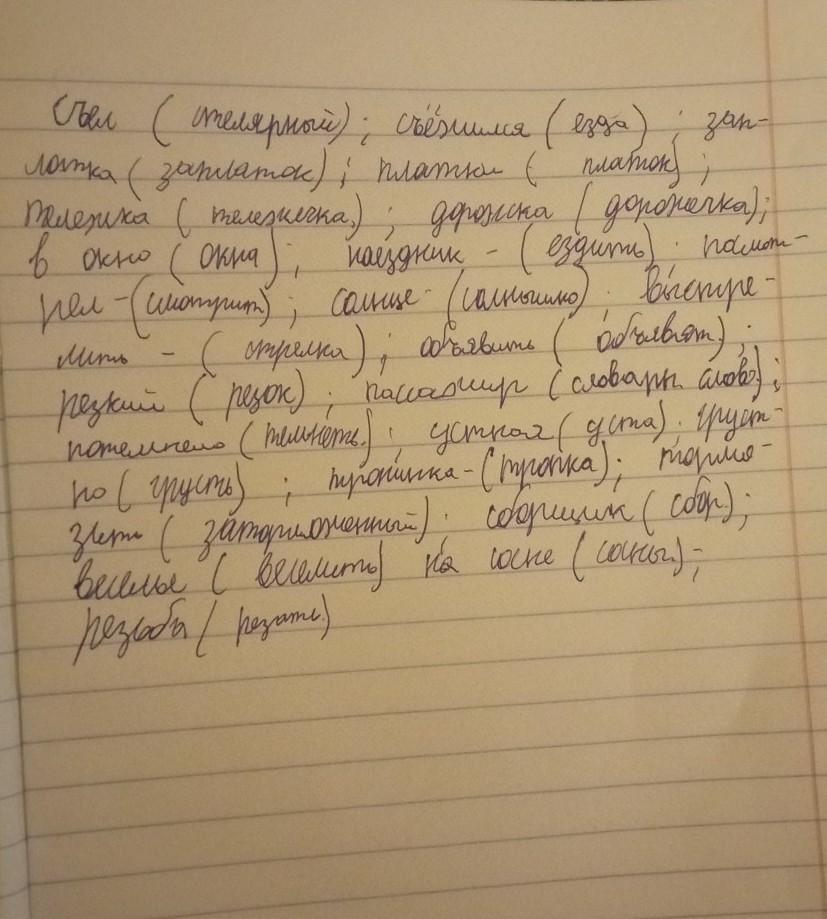 Съел ( столярный); съёжился ( езда ) ; зап-
латка ( заплаток) ; платки ( платок) ;
тележка ( тележечка.) ; дорожка ( дорожечка);
в окно ( окна ) ; наездник - ( ездить) ; посмот-
рел - (смотрит) ; солнце - (солнышко) ; выстре-
лить - ( стрелка ) ; объявить ( объявят) ;
резкий ( резок) ; пассажир ( словарн. слово) ;
потемнело ( темнеть.) ; устная ( уста) ; груст-
но ( грусть) ; тропинка - (тропка) ; тормо-
зить ( заторможенный) ; сборщик ( сбор.) ;
веселье ( веселить) на сосне ( сосны.) ;
резьба ( резать.)